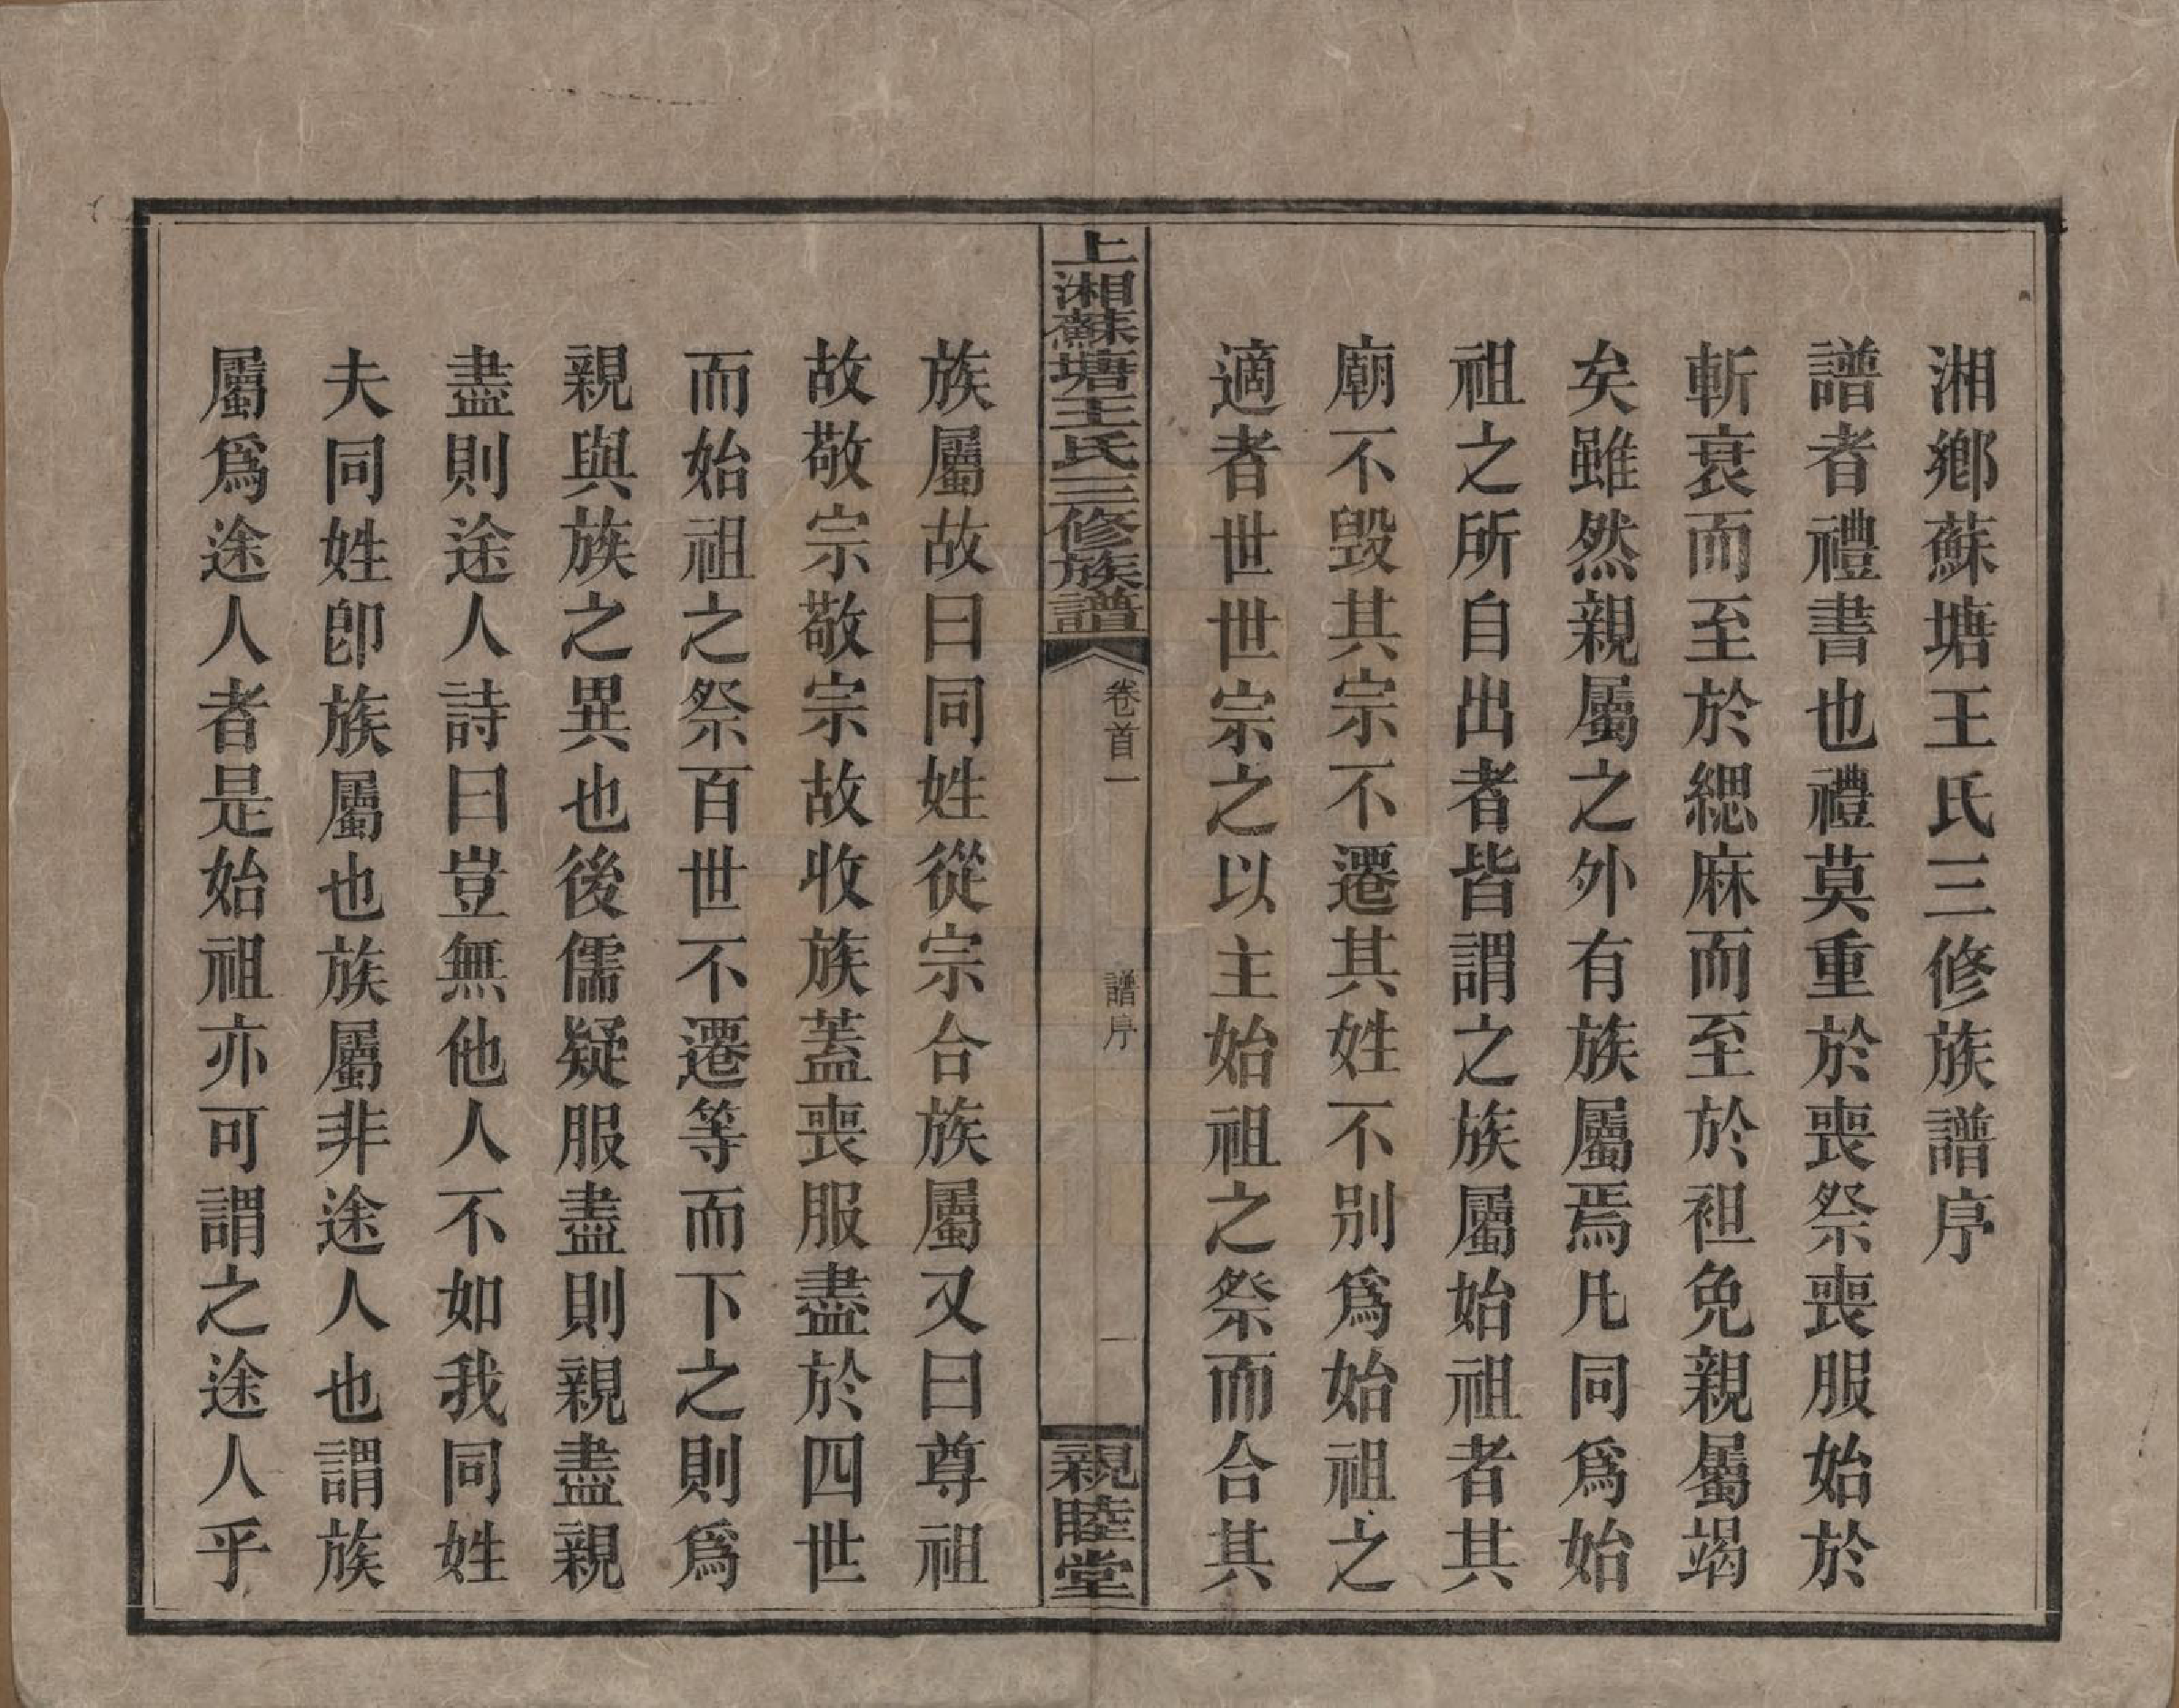 湘鄉蘇塘王氏三修族譜序
譜者禮書也禮莫重於喪祭喪服始於
斬衰而至於緦麻而至於袒免親屬竭
矣雖然親屬之外有族屬焉凡同爲始
祖之所自出者皆謂之族屬始祖者其
廟不毀其宗不遷其姓不別爲始祖之
適者世世宗之以主始祖之祭而合其
上湘蘇塘王氏三修族譜
卷首一
譜序
一
親睦堂
族屬故曰同姓從宗合族屬又曰尊祖
故敬宗敬宗故收族蓋喪服盡於四世
而始祖之祭百世不遷等而下之則爲
親與族之異也後儒疑服盡則親盡親
盡則途人詩曰豈無他人不如我同姓
夫同姓卽族屬也族屬非途人也謂族
屬爲途人者是始祖亦可謂之途人乎